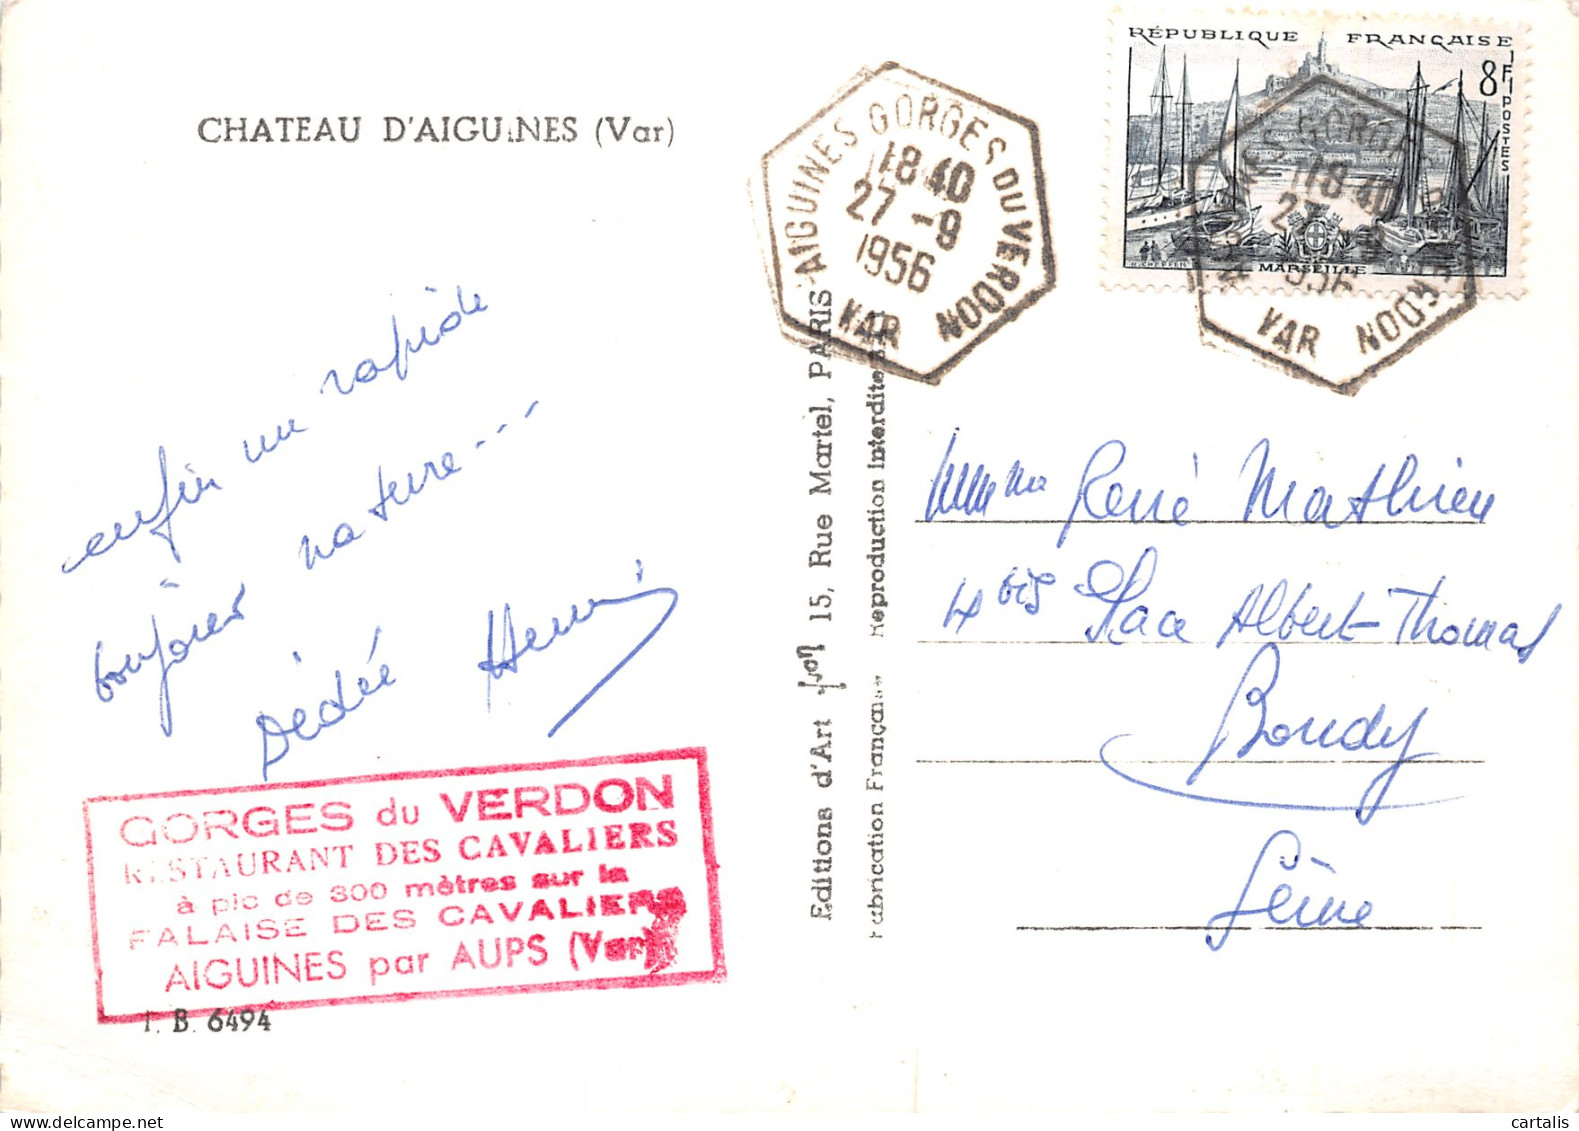 CHATEAU D'AIGUINES (Var)
enfin un rapide
bonjour nature...
Dédée
GORGES du VERDON
RESTAURANT DES CAVALIERS
à pic de 300 mètres sur la
FALAISE DES CAVALIERS
AIGUINES par AUPS (Var)
I. B. 6494
Editions d'Art Yvon 15, Rue Martel, PARIS
Fabrication Française Reproduction Interdite
AIGUINES GORGES DU VERDON
18 40
27 -9
1956
VAR
RÉPUBLIQUE FRANÇAISE
8F
POSTES
MARSEILLE
AIGUINES GORGES DU VERDON
18 40
27
1956
VAR
René Mathieu
4 bis Place Albert-Thomas
Bondy
Seine
cartalis